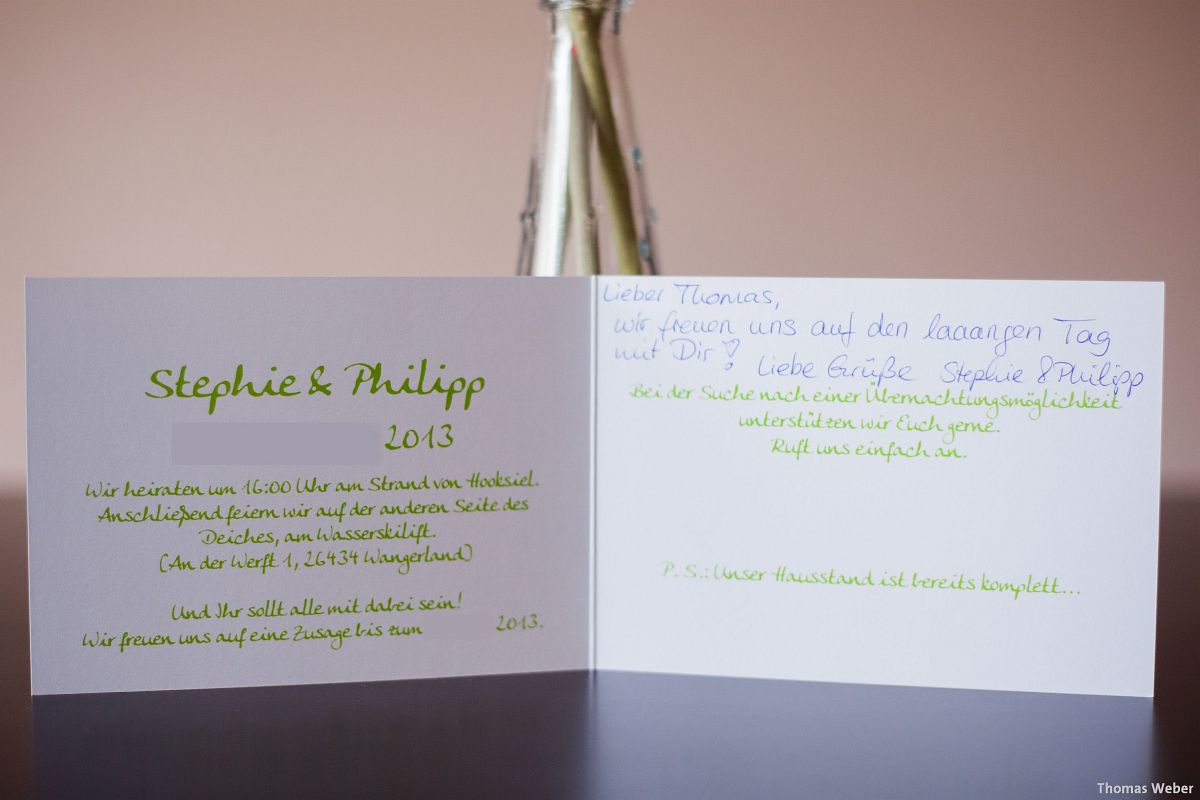 Stephie & Philipp
2013
Wir heiraten um 16:00 Uhr am Strand von Hooksiel.
Anschließend feiern wir auf der anderen Seite des
Deiches, am Wasserskilift.
(An der Werft 1, 26434 Wangerland)
Und Ihr sollt alle mit dabei sein!
Wir freuen uns auf eine Zusage bis zum 2013.
Lieber Thomas,
wir freuen uns auf den laaangen Tag
mit Dir!
Liebe Grüße Stephie & Philipp
Bei der Suche nach einer Übernachtungsmöglichkeit
unterstützen wir Euch gerne.
Ruft uns einfach an.
P. S.: Unser Hausstand ist bereits komplett...
Thomas Weber